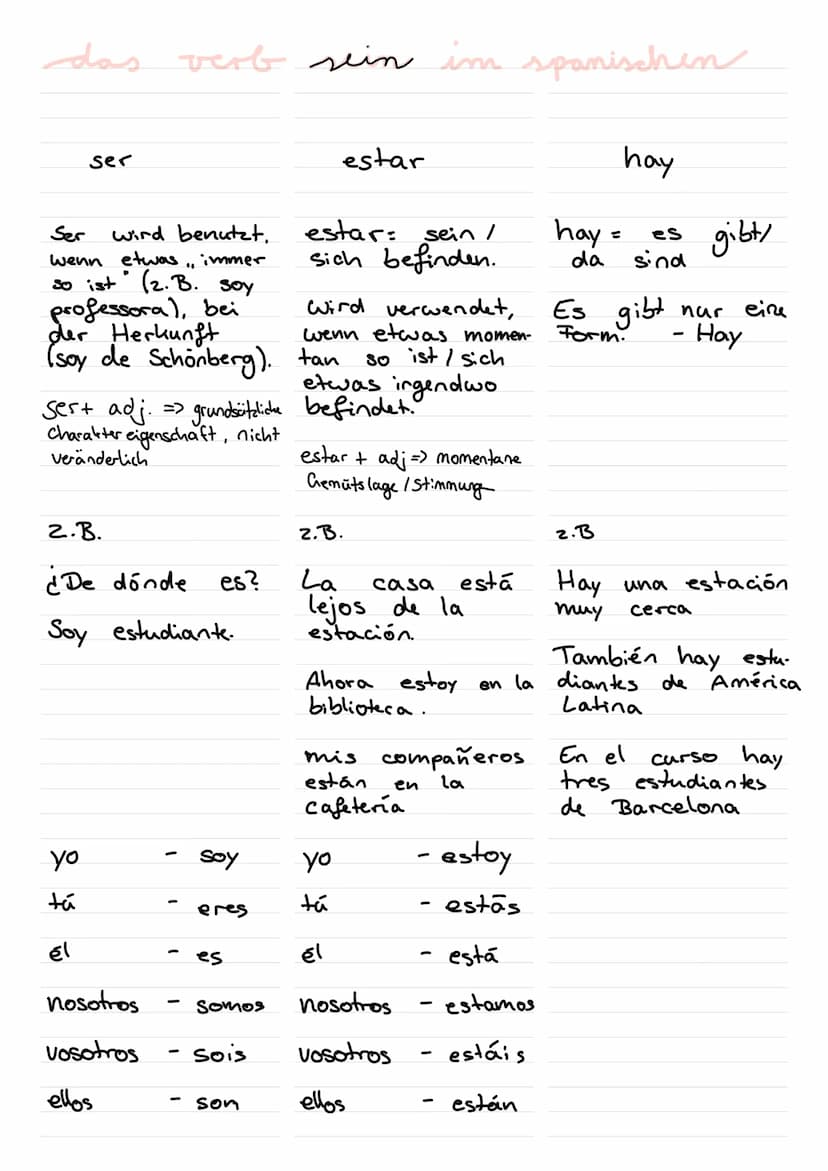 das verb sein im spanischen
ser
Ser wird benutzt,
wenn etwas „immer
so ist" (z.B. soy
professora), bei
der Herkunft
(soy de Schönberg).
ser+ adj. => grundsätzliche
Charaktereigenschaft, nicht
veränderlich
z.B.
¿De dónde es?
Soy estudiante.
yo - soy
tú - eres
él - es
nosotros - somos
vosotros - sois
ellos - son
estar
estar= sein /
sich befinden.
wird verwendet,
wenn etwas momen-
tan so ist / sich
etwas irgendwo
befindet.
estar + adj => momentane
Gemütslage / Stimmung
z.B.
La casa está
lejos de la
estación.
Ahora estoy en la
biblioteca.
mis compañeros
están en la
cafetería
yo - estoy
tú - estās
él - está
nosotros - estamos
vosotros - estáis
ellos - están
hay
hay = es gibt/
da sind
Es gibt nur eine
Form. - Hay
z.B
Hay una estación
muy cerca
También hay estu-
diantes de América
Latina
En el curso hay
tres estudiantes
de Barcelona